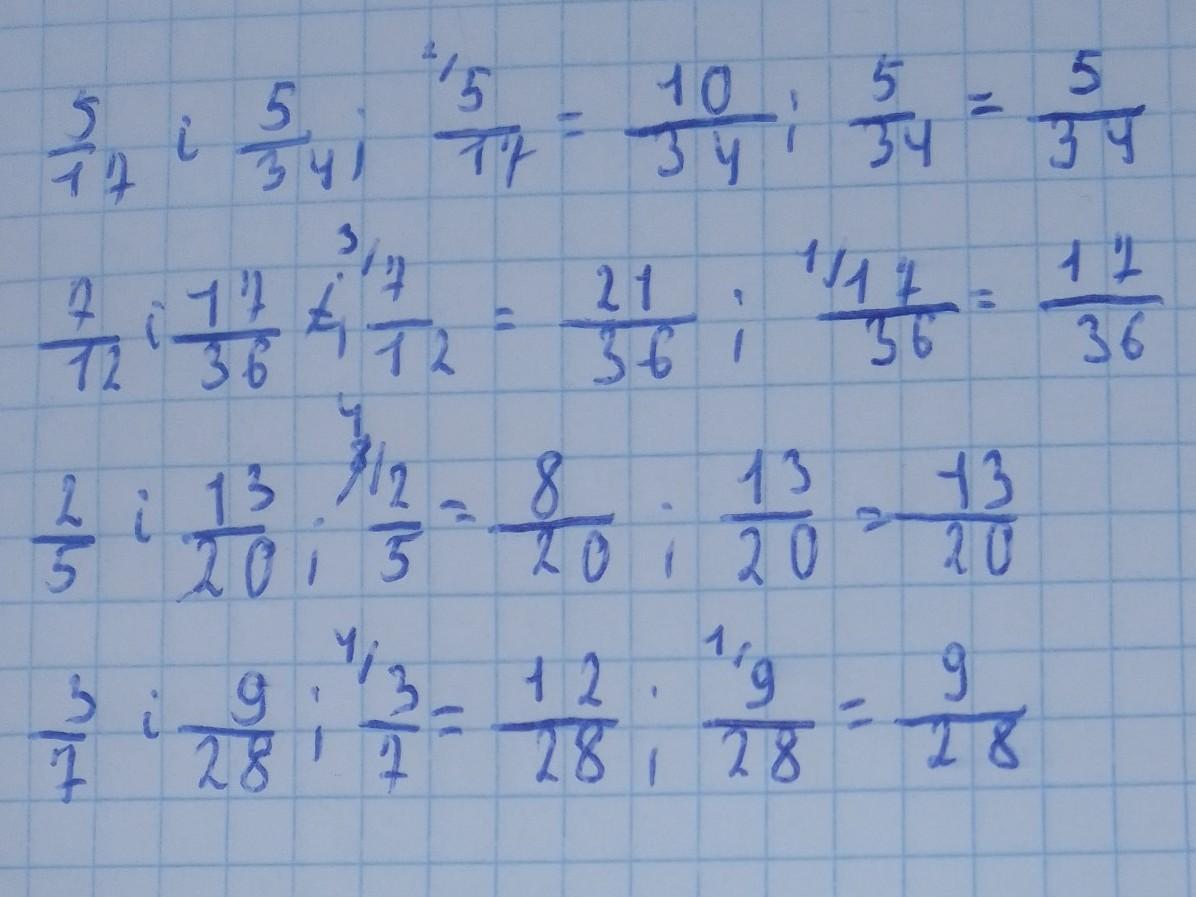 5/17 i 5/34; 2/ 5/17 = 10/34; 5/34 = 5/34
7/12 i 17/36; 3/ 7/12 = 21/36; 1/ 17/36 = 17/36
2/5 i 13/20; 4/ 2/5 = 8/20; 13/20 = 13/20
3/7 i 9/28; 4/ 3/7 = 12/28; 1/ 9/28 = 9/28